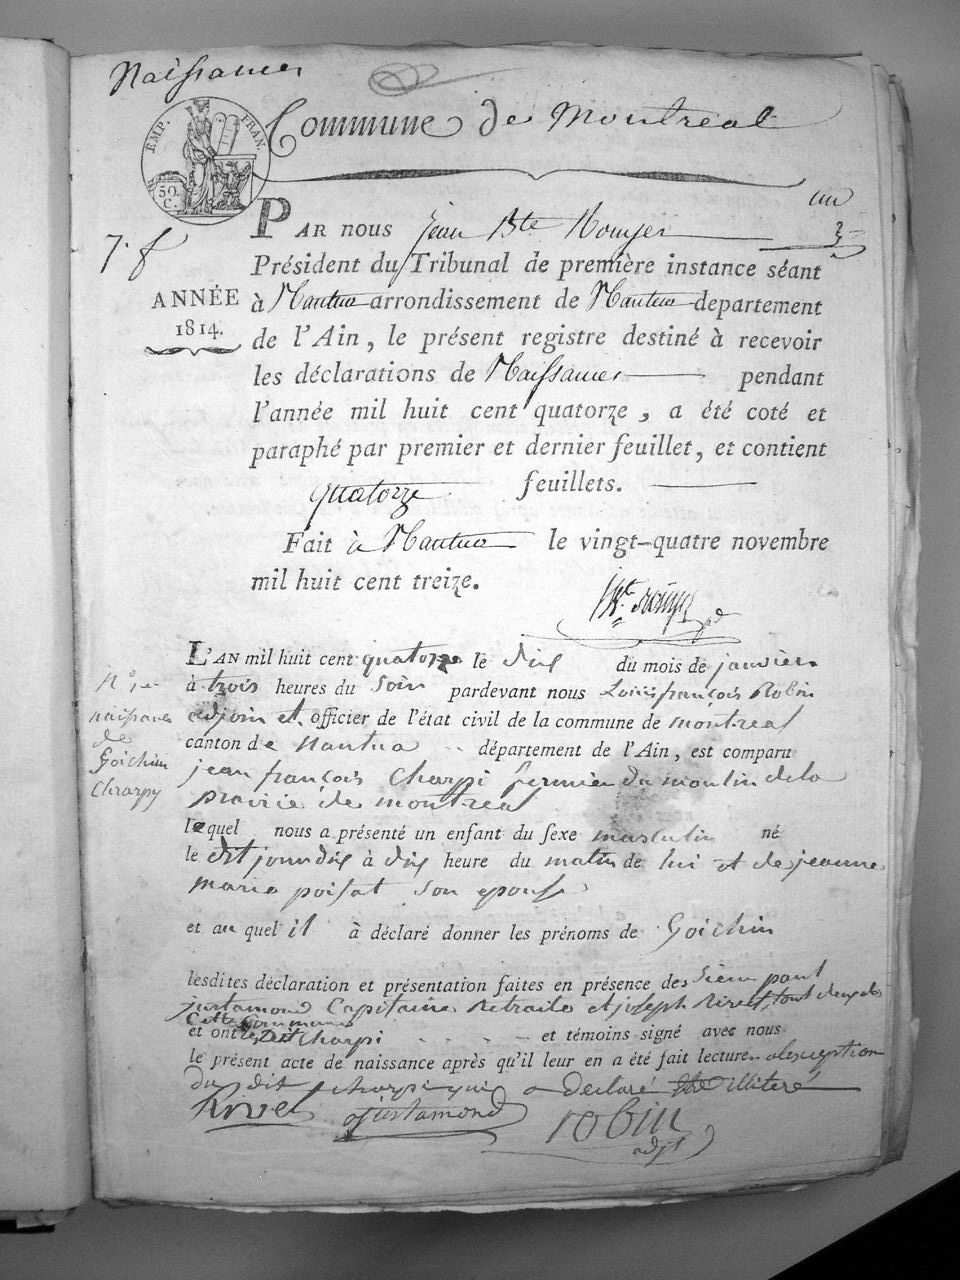 Naissances
Commune de Montreal
EMP. FRAN.
50.
C.
un
7. f
PAR nous jean Bte Rouyer
Président du Tribunal de première instance séant
ANNÉE
1814.
à Nantua arrondissement de Nantua departement
de l'Ain, le présent registre destiné à recevoir
les déclarations de Naissances pendant
l'année mil huit cent quatorze, a été coté et
paraphé par premier et dernier feuillet, et contient
quatorze feuillets.
Fait à Nantua le vingt-quatre novembre
mil huit cent treize.
L'AN mil huit cent quatorze le dix du mois de janvier
à trois heures du soir pardevant nous Louis françois Robin
adjoin et officier de l'état civil de la commune de montreal
canton de nantua département de l'Ain, est comparu
jean françois Charpi fermier du moulin dela
prairie de montreal
N° 1er
naissances
de
Goichin
Charpy
lequel nous a présenté un enfant du sexe masculin né
le dit jour dix à dix heure du matin de lui et de jeanne
marie poisat son epouse
et au quel il à déclaré donner les prénoms de Goichin
lesdites déclaration et présentation faites en présence des sieur paul
justamond Capitaine Retraite et joseph Rivet, tout deux de
Cette Commune
et ont Ledit Charpi et témoins signé avec nous
le présent acte de naissance après qu'il leur en a été fait lecture alexception
du dit charpi qui a declaré illiteré
Rivet justamond robin
adjt